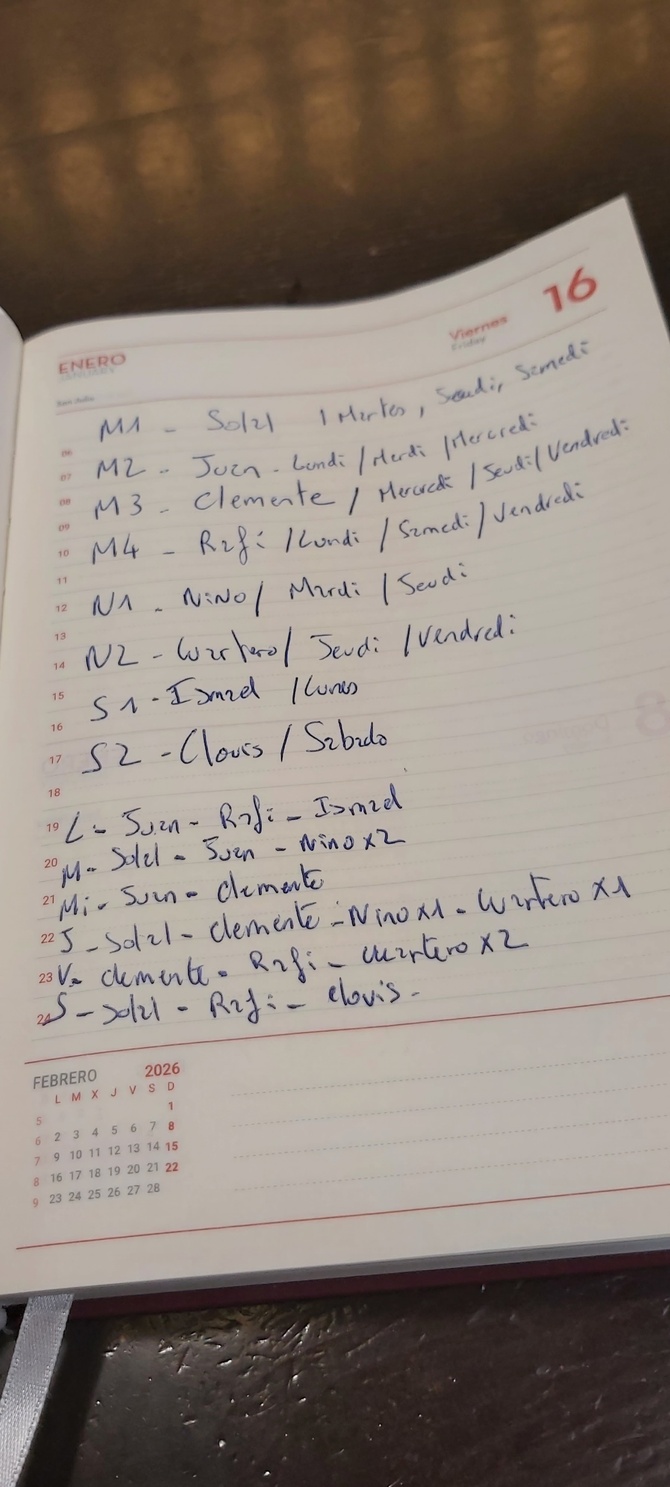 ENERO
JANUARY
Viernes
Friday
16
M1 - Solal / Martes, Jeudi, Samedi
06
M2 - Juan - Lundi / Mardi / Mercredi
07
08 M3 - Clemente / Mercredi / Jeudi / Vendredi
09
10 M4 - Rafi / Lundi / Samedi / Vendredi
11
12 N1 - NiNO / Mardi / Jeudi
13
14 N2 - Wartero / Jeudi / Vendredi
15
S1 - Ismael / Lunes
16
17 S2 - Clovis / Sabado
18
19 L - Juan - Rafi - Ismael
20 M - Solal - Juan - Nino x2
21 Mi - Juan - Clemente
22 J - Solal - Clemente - Nino x1 - Wartero x1
23 V - Clemente - Rafi - Wartero x2
24 S - Solal - Rafi - Clovis -
FEBRERO 2026
L M X J V S D
5 1
6 2 3 4 5 6 7 8
7 9 10 11 12 13 14 15
8 16 17 18 19 20 21 22
9 23 24 25 26 27 28